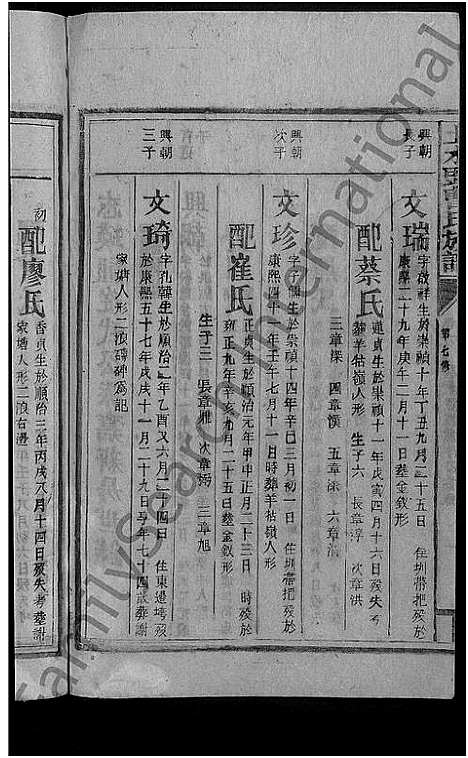 氏族譜
第七修
興朝
長子
文瑞
字啟祥生於崇禎十年丁丑九月二十五日 住圳帶把歿於
康熙二十九年庚午二月十一日塟金釵形
配蔡氏
蓮貞生於崇禎十一年戊寅四月十六日歿失考
塟羊牯嶺人形 生子六 長章淳 次章洪
三章深 四章漢 五章 六章
興朝
次子
文珍
字 生於崇禎十四年辛巳三月初一日 住圳帶把歿於
康熙四十一年壬午七月十一日時葬羊牯嶺人形
配崔氏
正貞生於順治元年甲申正月二十三日 時歿於
雍正九年辛亥九月二十五日塟金釵形
生子三 長章 次章 三章旭
興朝
三子
文琦
字孔 生於順治二年乙酉又六月二十四日 住東邊塆歿
於康熙五十七年戊戌十一月二十九日享年七十四歲葬謝
家塘人形二浪磚碑為記
初
配廖氏
香貞生於順治三年丙戌八月十四日歿失考塟謝
家塘人形二浪右邊
FamilySearch International